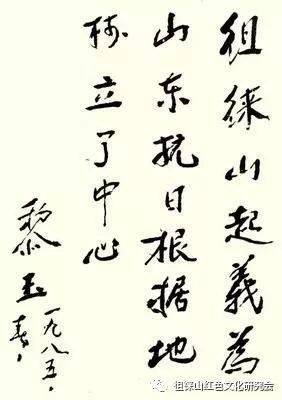 徂徕山起義為
山东抗日根据地
树立了中心
黎玉
一九八五、
春、
徂徕山红色文化研究会